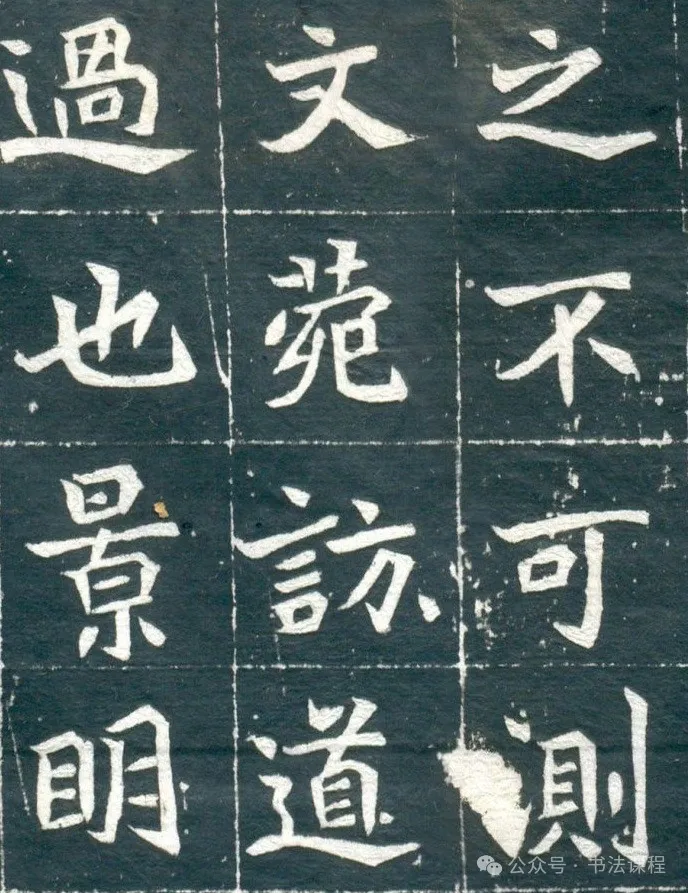 之不可測
文菀訪道
過也景明
公众号 · 书法课程